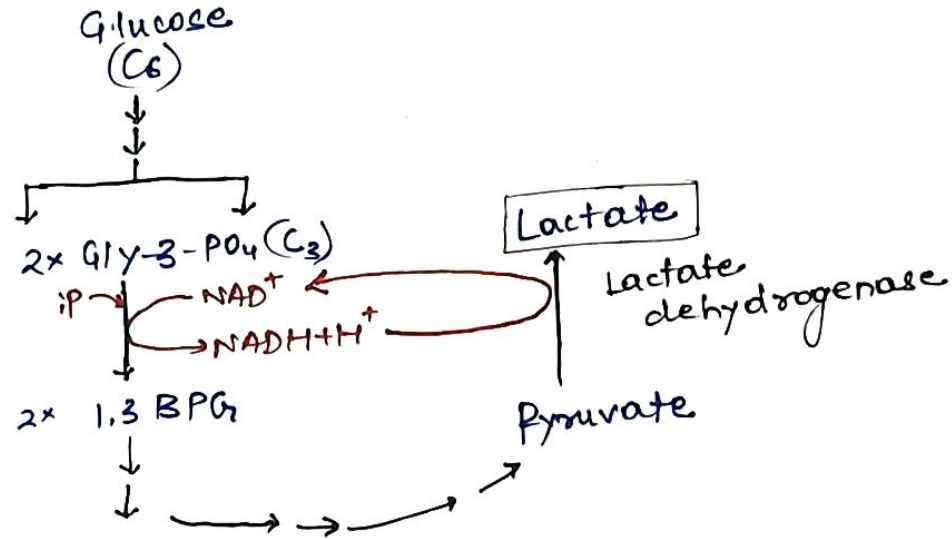 Glucose
(C6)
2x Gly-3-PO4 (C3)
iP
NAD+
NADH+H+
2x 1,3 BPG
Lactate
Lactate
dehydrogenase
Pyruvate